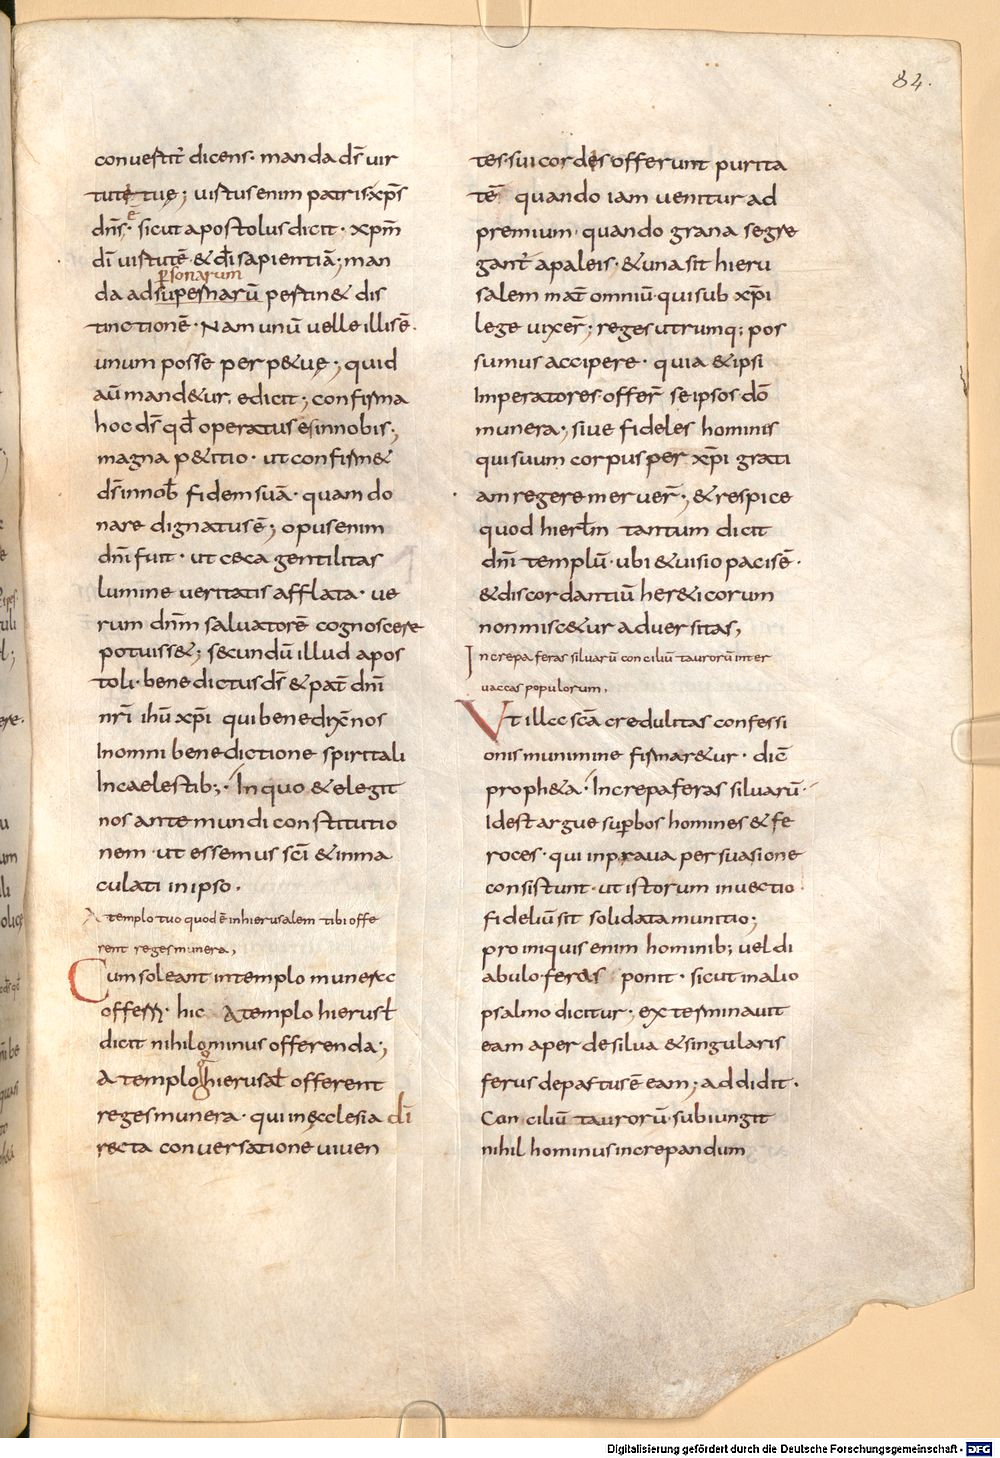 84.
conuestit̄ dicens· manda ds̄ uir
tutẹ̄ tuę; uirtus enim patris· xp̄s
dn̄s· sicut apostolus dicit· xpm̄
dī uirtutē & dī sapientiā; man
personarum
da ad supernarū pertin& dis
tinctionē· Nam unū uelle illis ē·
unum posse perp&uę; quid
aū mand&ur, edicit; confirma
hoc ds̄ qd̄ operatus es in nobis;
magna p&itio· ut confirm&
ds̄ in nob̄ fidem suā· quam do
nare dignatus ē; opus enim
dnī fuit· ut cęca gentilitas
lumine ueritatis afflata· ue
rum dnm̄ saluatorē cognoscere
potuiss&; secundū illud apos
toli· benedictus ds̄ & pat̄ dnī
nrī ihū xp̄i qui benedix̄ nos
In omni benedictione spiritali
In caelestib;· In quo & elegit
nos ante mundi constitutio
nem· ut essemus scī & inma
culati in ipso·
A templo tuo quod ē in hierusalem tibi offe
rent reges munera,
Cum soleant in templo munera
offerri· hic A templo hierusl̄
dicit nihilominus offerenda;
A templo hierusal̄ offerent
reges munera· qui in ęcclesia di
recta conuersatione uiuen
tes· sui cordis offerunt purita
tē quando iam uenitur ad
premium· quando grana segre
gant̄ a paleis· & una sit hieru
salem mat̄ omniū· qui sub xp̄i
lege uixer̄; reges utrumq; pos
sumus accipere· quia & ipsi
Imperatores· offer̄ se ipsos dō
munera; siue fideles hominis
qui suum corpus per xp̄i grati
am regere meruer̄; & respice
quod hierl̄m tantum dicit
dnī templū· ubi & uisio pacis ē·
& discordantiū her&icorum
non misc&ur aduersitas,
Increpa feras siluarū conciliū taurorū inter
uaccas populorum,
Vt illa scā credulitas confessi
onis munimine firmar&ur· dic̄
proph&a· Increpa feras siluarū·
Id est argue supbos homines & fe
roces· qui in praua persuasione
consistunt· ut istorum inuectio
fideliū sit solidata munitio;
pro iniquis enim hominib; uel di
abulo feras ponit· sicut in alio
psalmo dicitur; exterminauit
eam aper de silua & singularis
ferus depastus ē eam; addidit·
Conciliū taurorū· subiungit
nihil hominus increpandum
Digitalisierung gefördert durch die Deutsche Forschungsgemeinschaft - DFG